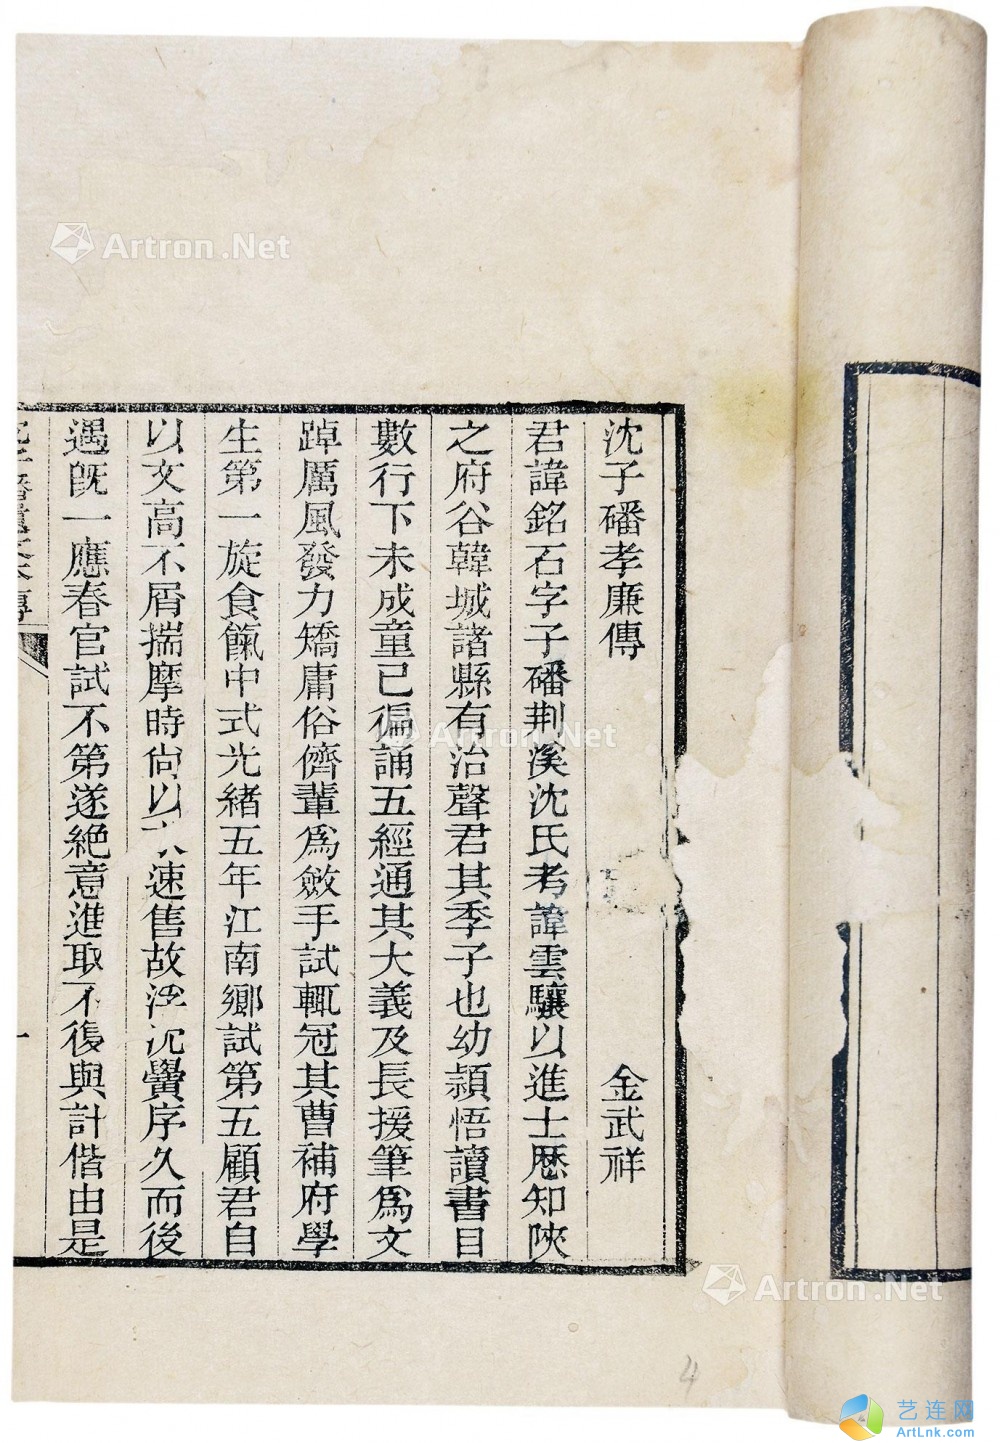 沈子磻孝廉傳
金武祥
君諱銘石字子磻荆溪沈氏考諱雲驤以進士歷知陝
之府谷韓城諸縣有治聲君其季子也幼頴悟讀書目
數行下未成童已徧誦五經通其大義及長援筆爲文
踔厲風發力矯庸俗儕輩爲斂手試輒冠其曹補府學
生第一旋食餼中式光緒五年江南鄉試第五顧君自
以文高不屑揣摩時尙以速售故浮沈黌序久而後
遇旣一應春官試不第遂絕意進取不復與計偕由是
一
Artron.Net
Artron.Net
Artron.Net
4
艺连网
ArtLnk.com